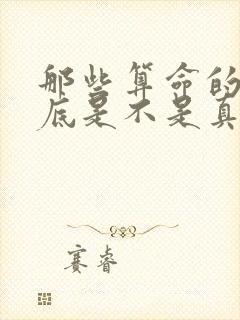 那些算命的
底是不是真
赛睿